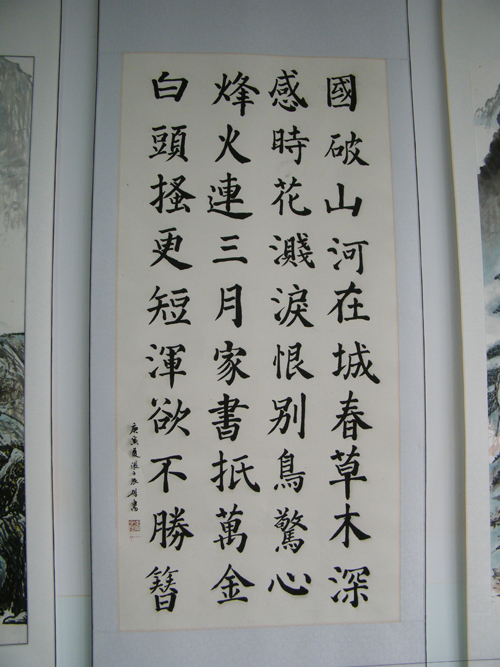 國破山河在城春草木深
感時花濺淚恨别鳥驚心
烽火連三月家書抵萬金
白頭搔更短渾欲不勝簪
庚寅夏
書